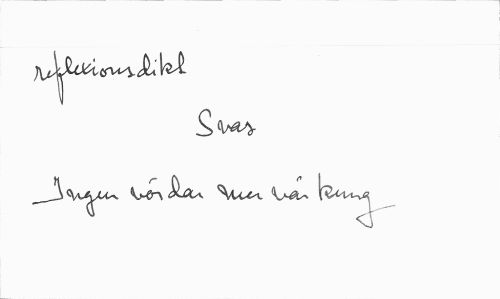 reflexionsdikt
Svar
Ingen vördar mer vår kung